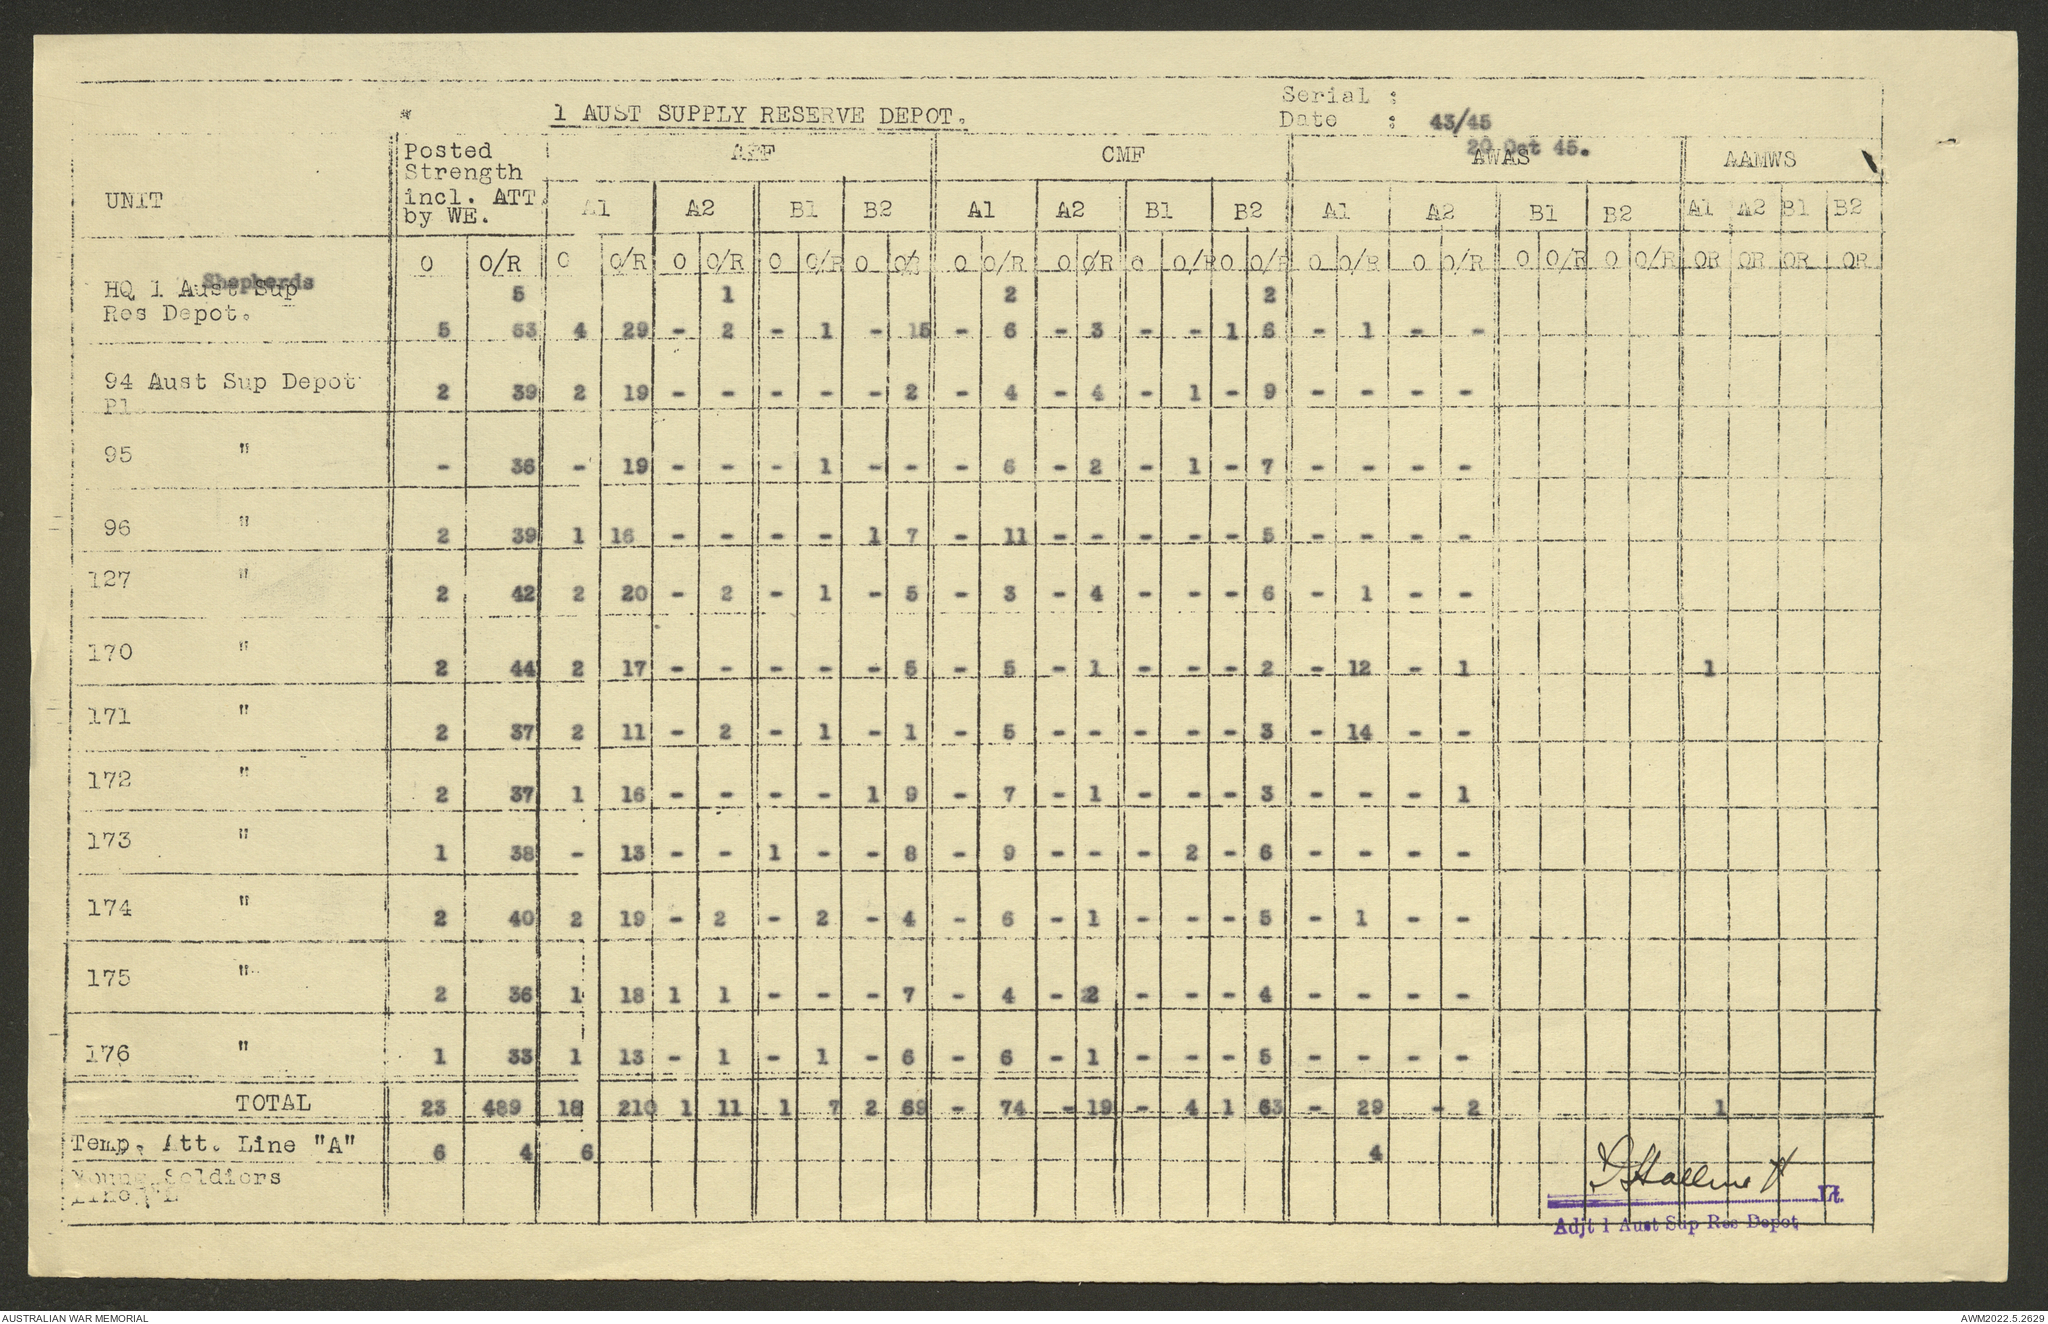 1 AUST SUPPLY RESERVE DEPOT.
Serial : 43/45
Date : 20 Oct 45.
UNIT Posted Strength incl. ATT by WE. AIF CMF AWAS AAMWS
A1 A2 B1 B2 A1 A2 B1 B2 A1 A2 B1 B2 A1 A2 B1 B2
O O/R O O/R O O/R O O/R O O/R O O/R O O/R O O/R O O/R O O/R O O/R O O/R O O/R OR OR OR OR
Shepherds 5 1 2 2
HQ 1 Aust Sup
Res Depot. 5 63 4 29 - 2 - 1 - 15 - 6 - 3 - - 1 6 - 1 - -
94 Aust Sup Depot 2 39 2 19 - - - - - 2 - 4 - 4 - 1 - 9 - - - -
Pl
95 " - 36 - 19 - - - 1 - - - 6 - 2 - 1 - 7 - - - -
96 " 2 39 1 16 - - - - 1 7 - 11 - - - - - 5 - - - -
127 " 2 42 2 20 - 2 - 1 - 5 - 3 - 4 - - - 6 - 1 - -
170 " 2 44 2 17 - - - - - 5 - 5 - 1 - - - 2 - 12 - 1 1
171 " 2 37 2 11 - 2 - 1 - 1 - 5 - - - - - 3 - 14 - -
172 " 2 37 1 16 - - - - 1 9 - 7 - 1 - - - 3 - - - 1
173 " 1 38 - 13 - - 1 - - 8 - 9 - - - 2 - 6 - - - -
174 " 2 40 2 19 - 2 - 2 - 4 - 6 - 1 - - - 5 - 1 - -
175 " 2 36 1 18 1 1 - - - 7 - 4 - 2 - - - 4 - - - -
176 " 1 33 1 13 - 1 - 1 - 6 - 6 - 1 - - - 5 - - - -
TOTAL 23 489 18 210 1 11 1 7 2 69 - 74 - 19 - 4 1 63 - 29 - 2 1
Temp. Att. Line "A" 6 4 6 4
Young Soldiers
Line
Lt.
Adjt 1 Aust Sup Res Depot
AUSTRALIAN WAR MEMORIAL
AWM2022.5.2629